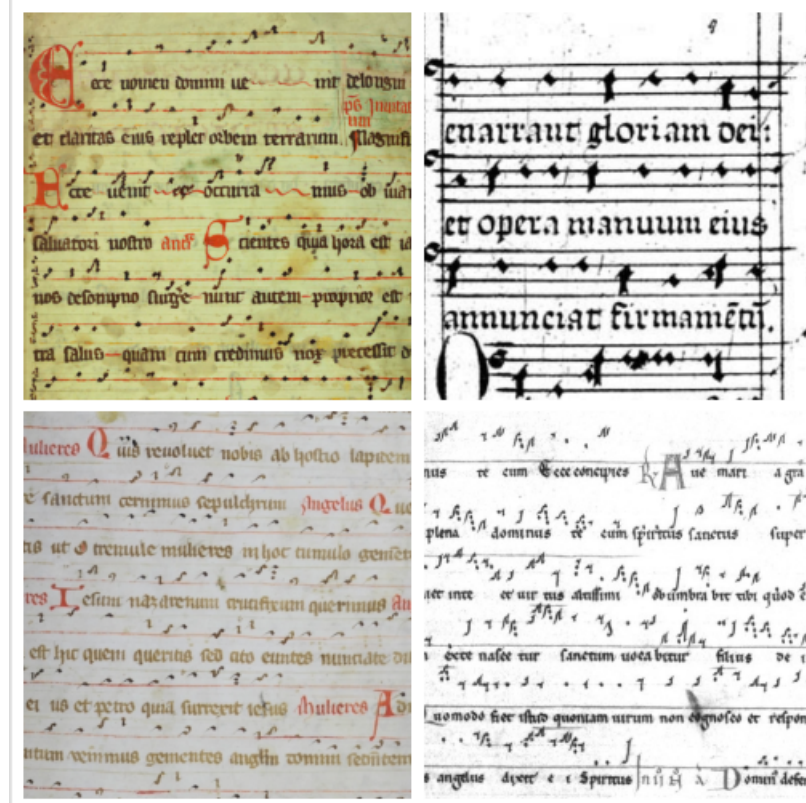 Ecce nomen domini ue nit delongin
et claritas eius replet orbem terrarum Magnifi
Ecce uenit ex occurra mus ob uiam
saluatori nostro Scientes quia hora est ia
nos desompno surge nunc autem propior est
tra salus quam cum credimus nox precessit
enarrant gloriam dei:
et opera manuum eius
annunciat firmamētū.
ulieres Quis reuoluet nobis ab hostio lapitem
sanctum cernimus sepulchrum Angelus Qu
ut O tremule mulieres in hoc tumulo gement
res Iesum nazarenum crucifixum querimus
est hic quem queritis sed cito euntes nunciate
ei us et petro quia surrexit iesus Mulieres Ad
ntum uenimus gementes anglm domini sedentem
te cum Ecce concipies Aue mari a gra
plena dominus te cum spiritus sanctus super
inte et uir tus altissimi obumbra bit tibi quod
ecce nasce tur sanctum uoca bitur filius de i
uomodo fiet istud quoniam uirum non cognosco et respon
angelus dixit e i Spiritus Domin